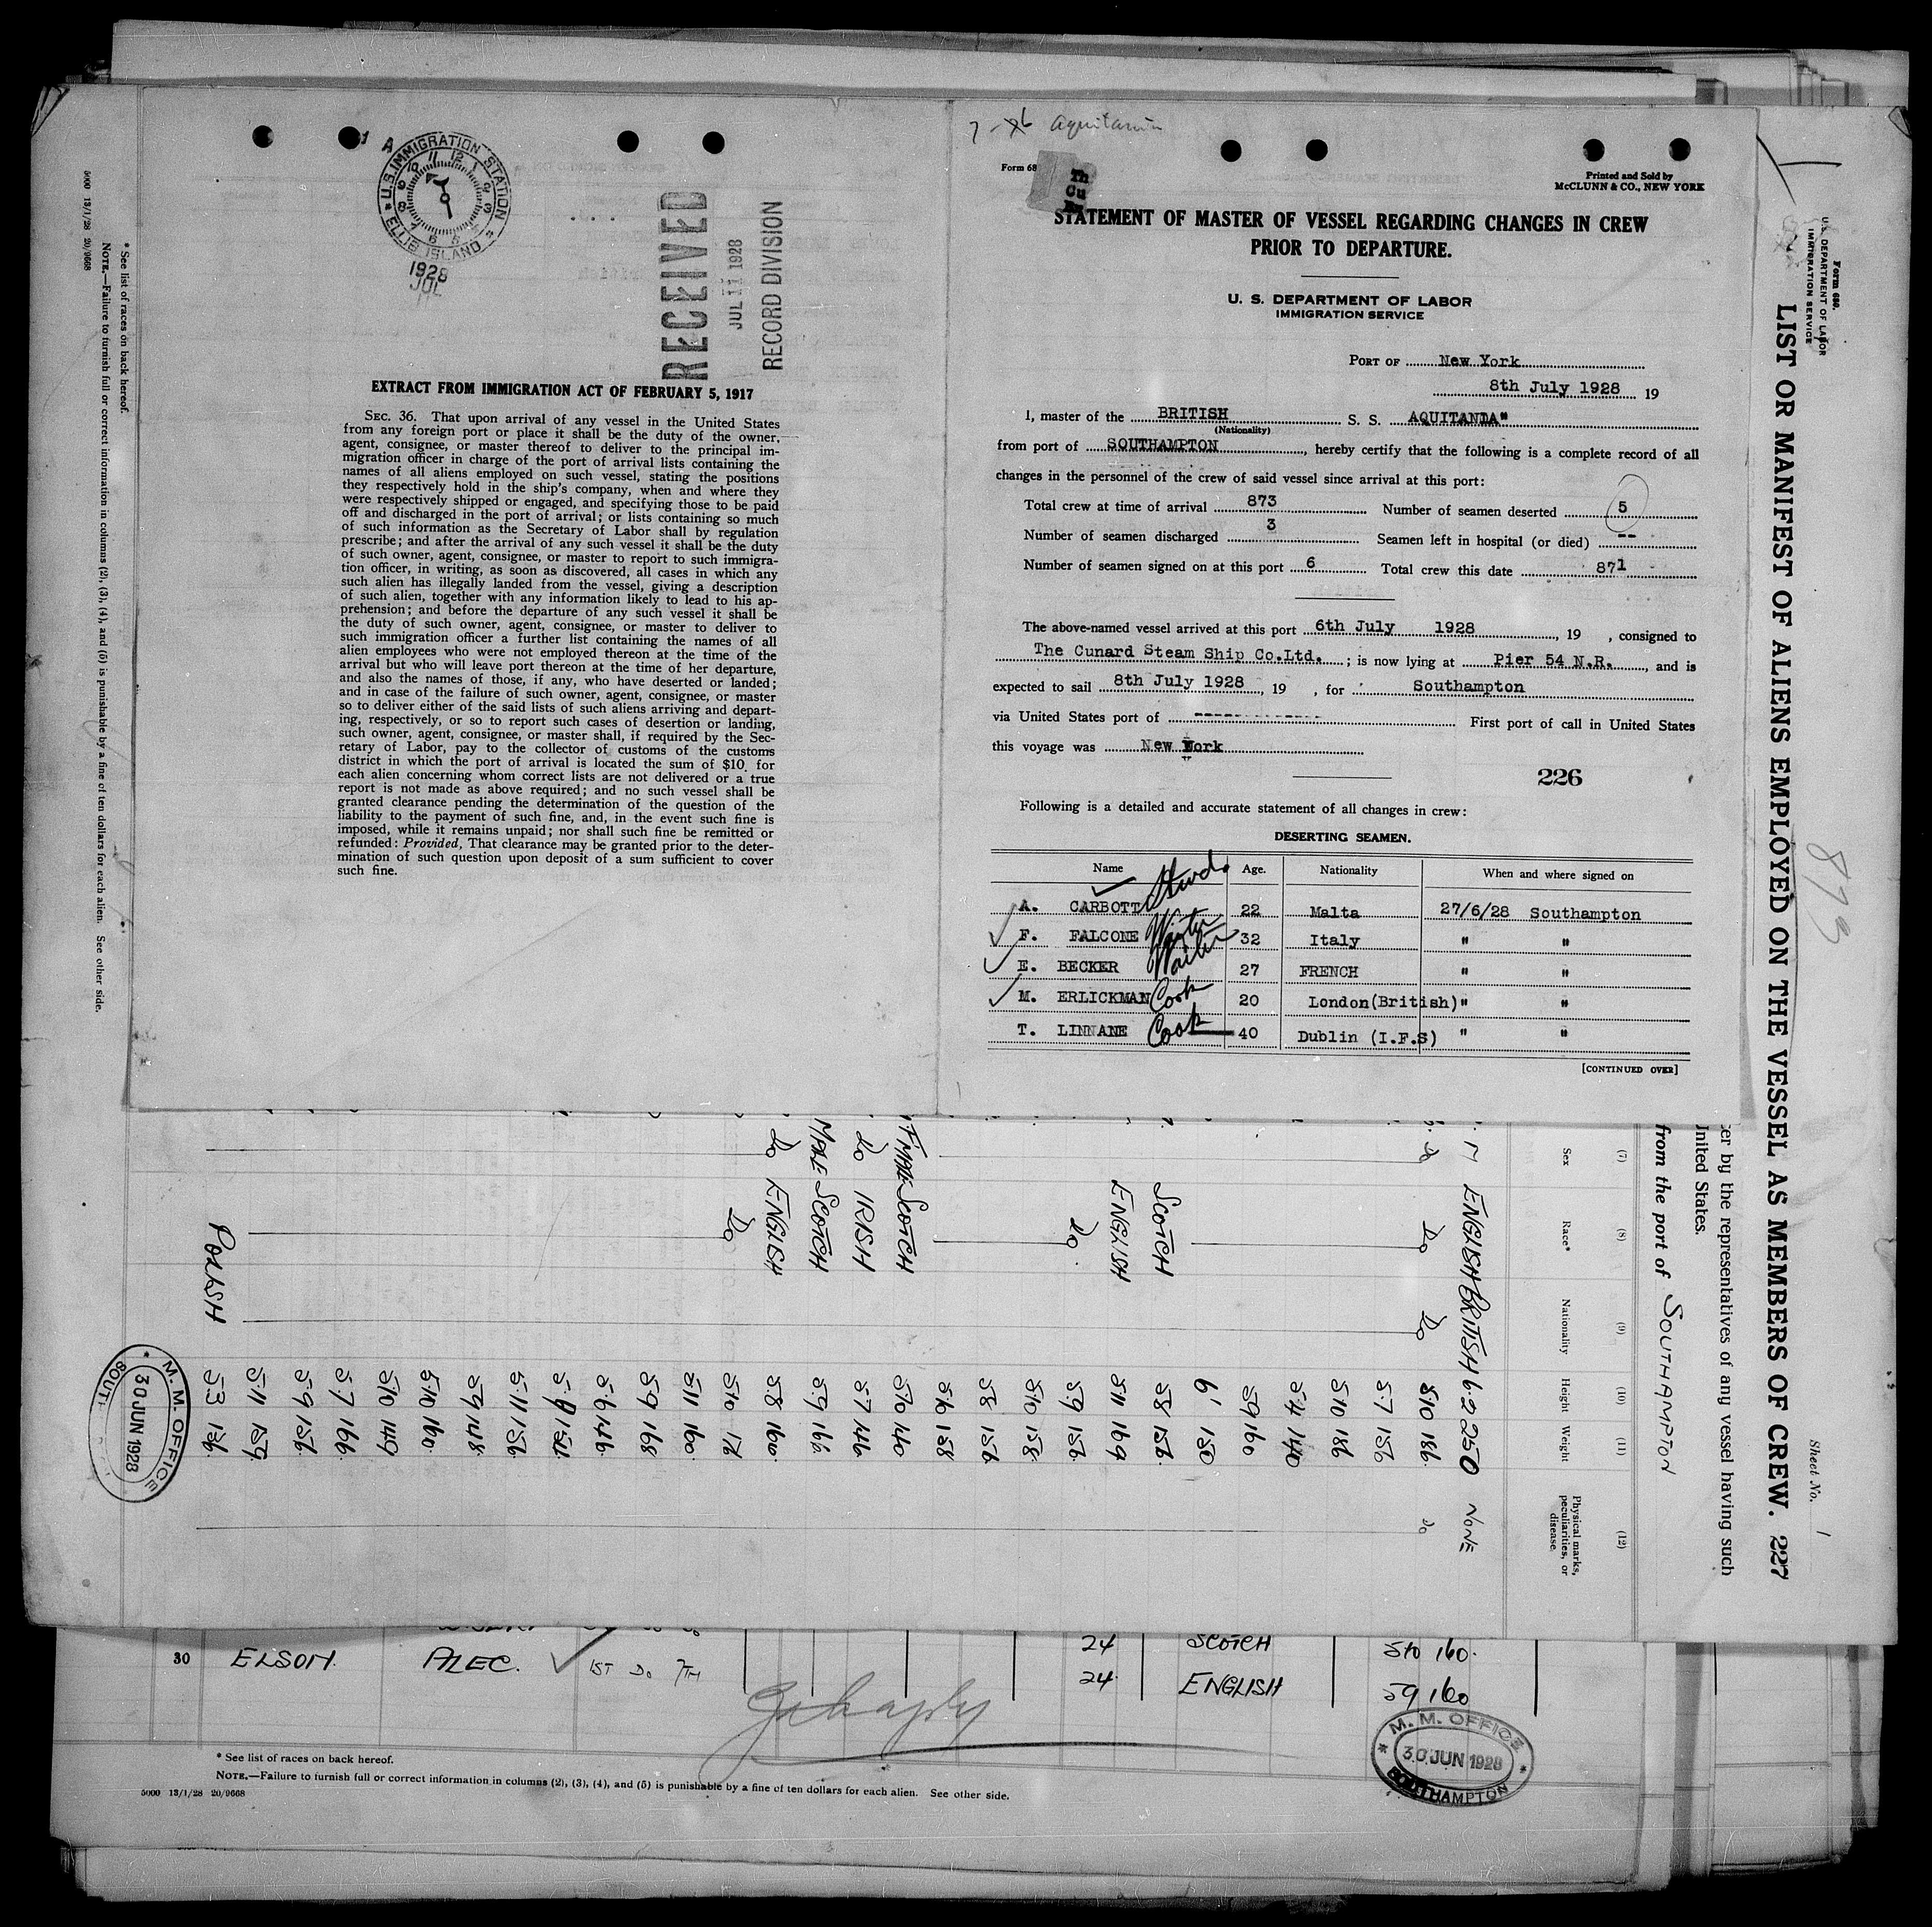 7-6 Aquitania
Form 68
Printed and Sold by
McCLUNN & CO., NEW YORK
STATEMENT OF MASTER OF VESSEL REGARDING CHANGES IN CREW
PRIOR TO DEPARTURE.
U. S. DEPARTMENT OF LABOR
IMMIGRATION SERVICE
PORT OF New York
8th July 1928 19
I, master of the BRITISH S. S. AQUITANIA"
(Nationality)
from port of SOUTHAMPTON, hereby certify that the following is a complete record of all
changes in the personnel of the crew of said vessel since arrival at this port:
Total crew at time of arrival 873 Number of seamen deserted 5
Number of seamen discharged 3 Seamen left in hospital (or died) --
Number of seamen signed on at this port 6 Total crew this date 871
The above-named vessel arrived at this port 6th July 1928, 19 , consigned to
The Cunard Steam Ship Co.Ltd. ; is now lying at Pier 54 N.R., and is
expected to sail 8th July 1928, 19 , for Southampton
via United States port of ------------- First port of call in United States
this voyage was New York
226
Following is a detailed and accurate statement of all changes in crew:
DESERTING SEAMEN.
Name Age. Nationality When and where signed on
A. CARBOTT Stwd. 22 Malta 27/6/28 Southampton
F. FALCONE Waiter 32 Italy " "
E. BECKER Waiter 27 FRENCH " "
M. ERLICKMAN Cook 20 London(British) " "
T. LINNANE Cook 40 Dublin (I.F.S) " "
[CONTINUED OVER]
U.S. IMMIGRATION STATION
ELLIS ISLAND
1928
JUL
RECEIVED
JUL 11 1928
RECORD DIVISION
EXTRACT FROM IMMIGRATION ACT OF FEBRUARY 5, 1917
SEC. 36. That upon arrival of any vessel in the United States
from any foreign port or place it shall be the duty of the owner,
agent, consignee, or master thereof to deliver to the principal im-
migration officer in charge of the port of arrival lists containing the
names of all aliens employed on such vessel, stating the positions
they respectively hold in the ship's company, when and where they
were respectively shipped or engaged, and specifying those to be paid
off and discharged in the port of arrival; or lists containing so much
of such information as the Secretary of Labor shall by regulation
prescribe; and after the arrival of any such vessel it shall be the duty
of such owner, agent, consignee, or master to report to such immigra-
tion officer, in writing, as soon as discovered, all cases in which any
such alien has illegally landed from the vessel, giving a description
of such alien, together with any information likely to lead to his ap-
prehension; and before the departure of any such vessel it shall be
the duty of such owner, agent, consignee, or master to deliver to
such immigration officer a further list containing the names of all
alien employees who were not employed thereon at the time of the
arrival but who will leave port thereon at the time of her departure,
and also the names of those, if any, who have deserted or landed;
and in case of the failure of such owner, agent, consignee, or master
so to deliver either of the said lists of such aliens arriving and depart-
ing, respectively, or so to report such cases of desertion or landing,
such owner, agent, consignee, or master shall, if required by the Sec-
retary of Labor, pay to the collector of customs of the customs
district in which the port of arrival is located the sum of $10 for
each alien concerning whom correct lists are not delivered or a true
report is not made as above required; and no such vessel shall be
granted clearance pending the determination of the question of the
liability to the payment of such fine, and, in the event such fine is
imposed, while it remains unpaid; nor shall such fine be remitted or
refunded: Provided, That clearance may be granted prior to the deter-
mination of such question upon deposit of a sum sufficient to cover
such fine.
Form 680.
U.S. DEPARTMENT OF LABOR
IMMIGRATION SERVICE
Sheet No. 1
873
LIST OR MANIFEST OF ALIENS EMPLOYED ON THE VESSEL AS MEMBERS OF CREW. 227
er by the representatives of any vessel having such
United States.
from the port of SOUTHAMPTON
(7) (8) (9) (10) (11) (12)
Sex Race* Nationality Height Weight Physical marks, peculiarities, or disease.
ENGLISH BRITISH 6.2 250 NONE
Do Do Do 5.10 186 Do
5.7 156
5.10 186
5.4 140
5.9 160
6' 150
SCOTCH 5.8 156
ENGLISH 5.11 169
Do 5.9 156
5.10 158
5.8 156
5.10 158
FMALE SCOTCH 5.10 140
Do IRISH 5.7 146
MALE SCOTCH 5.9 166
Do ENGLISH 5.8 160
Do 5.10 176
5.11 160
5.9 168
5.6 146
5.9 154
5.11 156
5.9 148
5.10 160
5.10 149
5.7 166
5.9 156
5.11 159
POLISH 5.3 136
M. M. OFFICE
30 JUN 1928
* See list of races on back hereof.
NOTE.—Failure to furnish full or correct information in columns (2), (3), (4), and (5) is punishable by a fine of ten dollars for each alien. See other side.
5000 13/1/28 20/9668
24 SCOTCH 5.10 160
30 ELSOM. ALEC. 1ST Do 7TH 24 ENGLISH 5.9 160
M. M. OFFICE
30 JUN 1928
SOUTHAMPTON
* See list of races on back hereof.
NOTE.—Failure to furnish full or correct information in columns (2), (3), (4), and (5) is punishable by a fine of ten dollars for each alien. See other side.
5000 13/1/28 20/9668